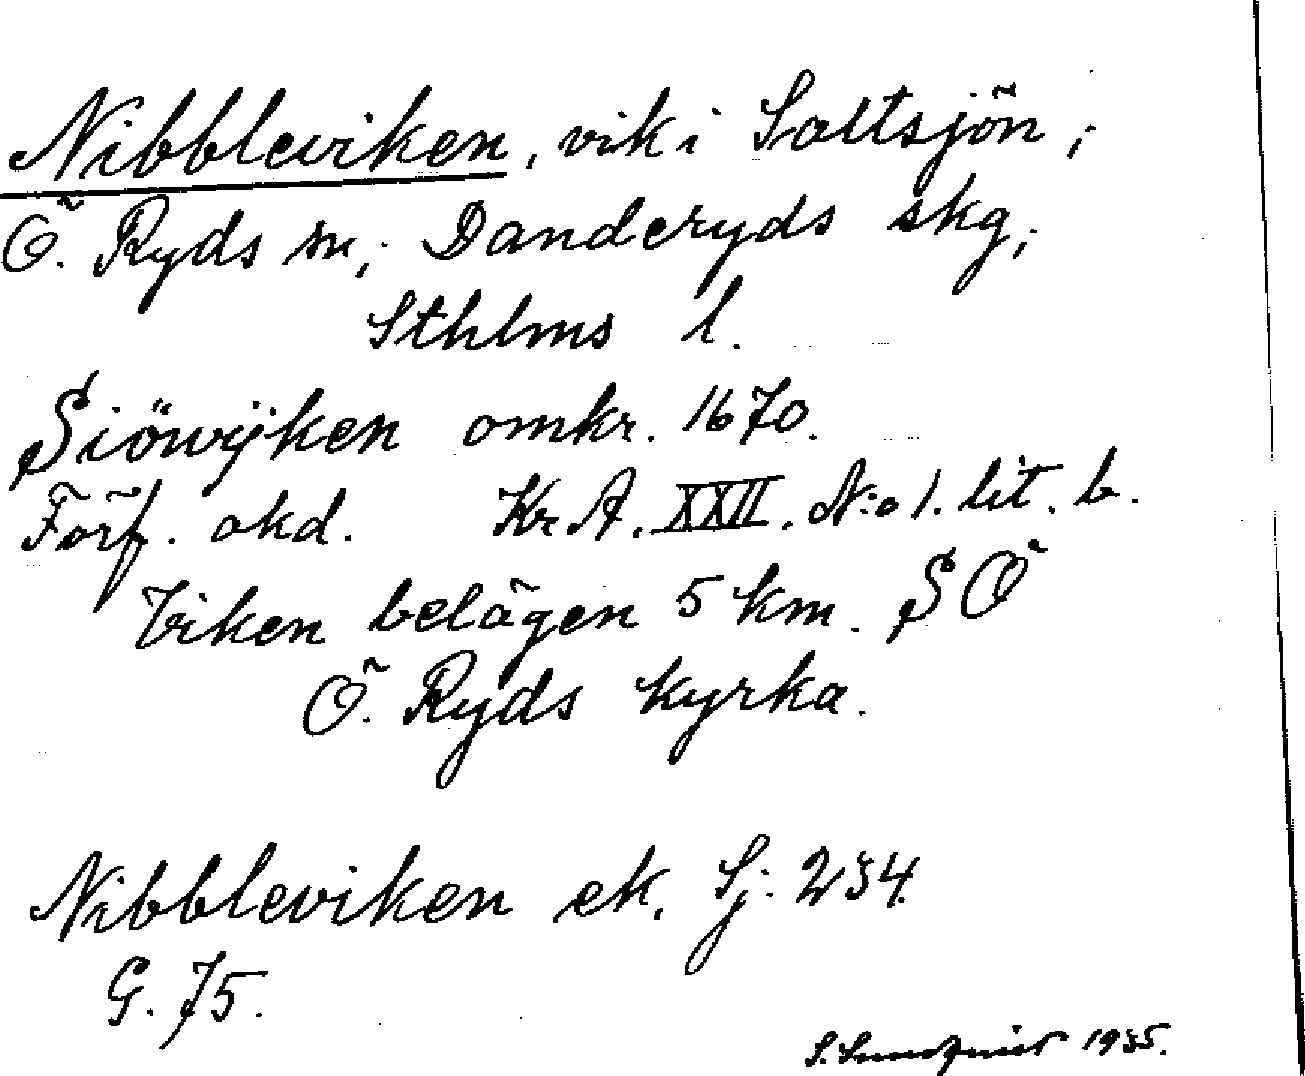 Nibbleviken, vik i Saltsjön,
Ö. Ryds sn, Danderyds skg,
Sthlms l.
Siöwijken omkr. 1670.
Förf. okd. Kr. A. XXII. N:o 1. lit. b.
Viken belägen 5 km. SÖ
Ö. Ryds kyrka.
Nibbleviken ek. Sj. 234.
G. 75.
S. Sundquist 1935.